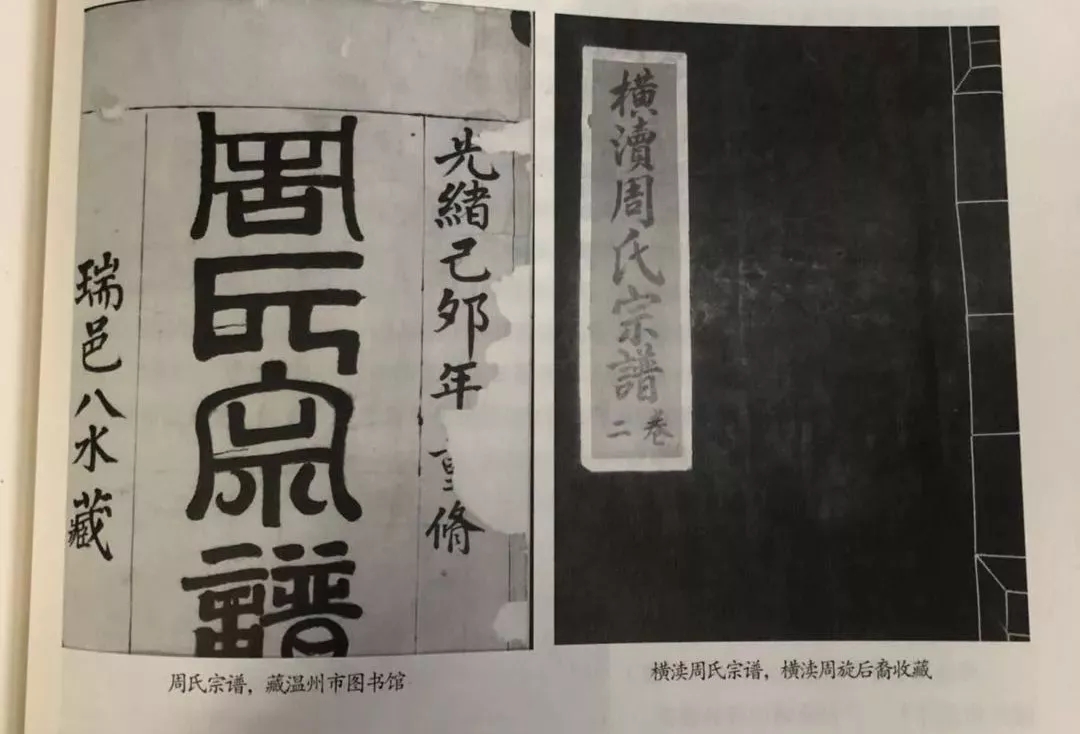 光緒己夘年重脩
周氏宗譜
瑞邑八水藏
周氏宗谱，藏温州市图书馆
橫瀆周氏宗譜
卷二
横渎周氏宗谱，横渎周旋后裔收藏